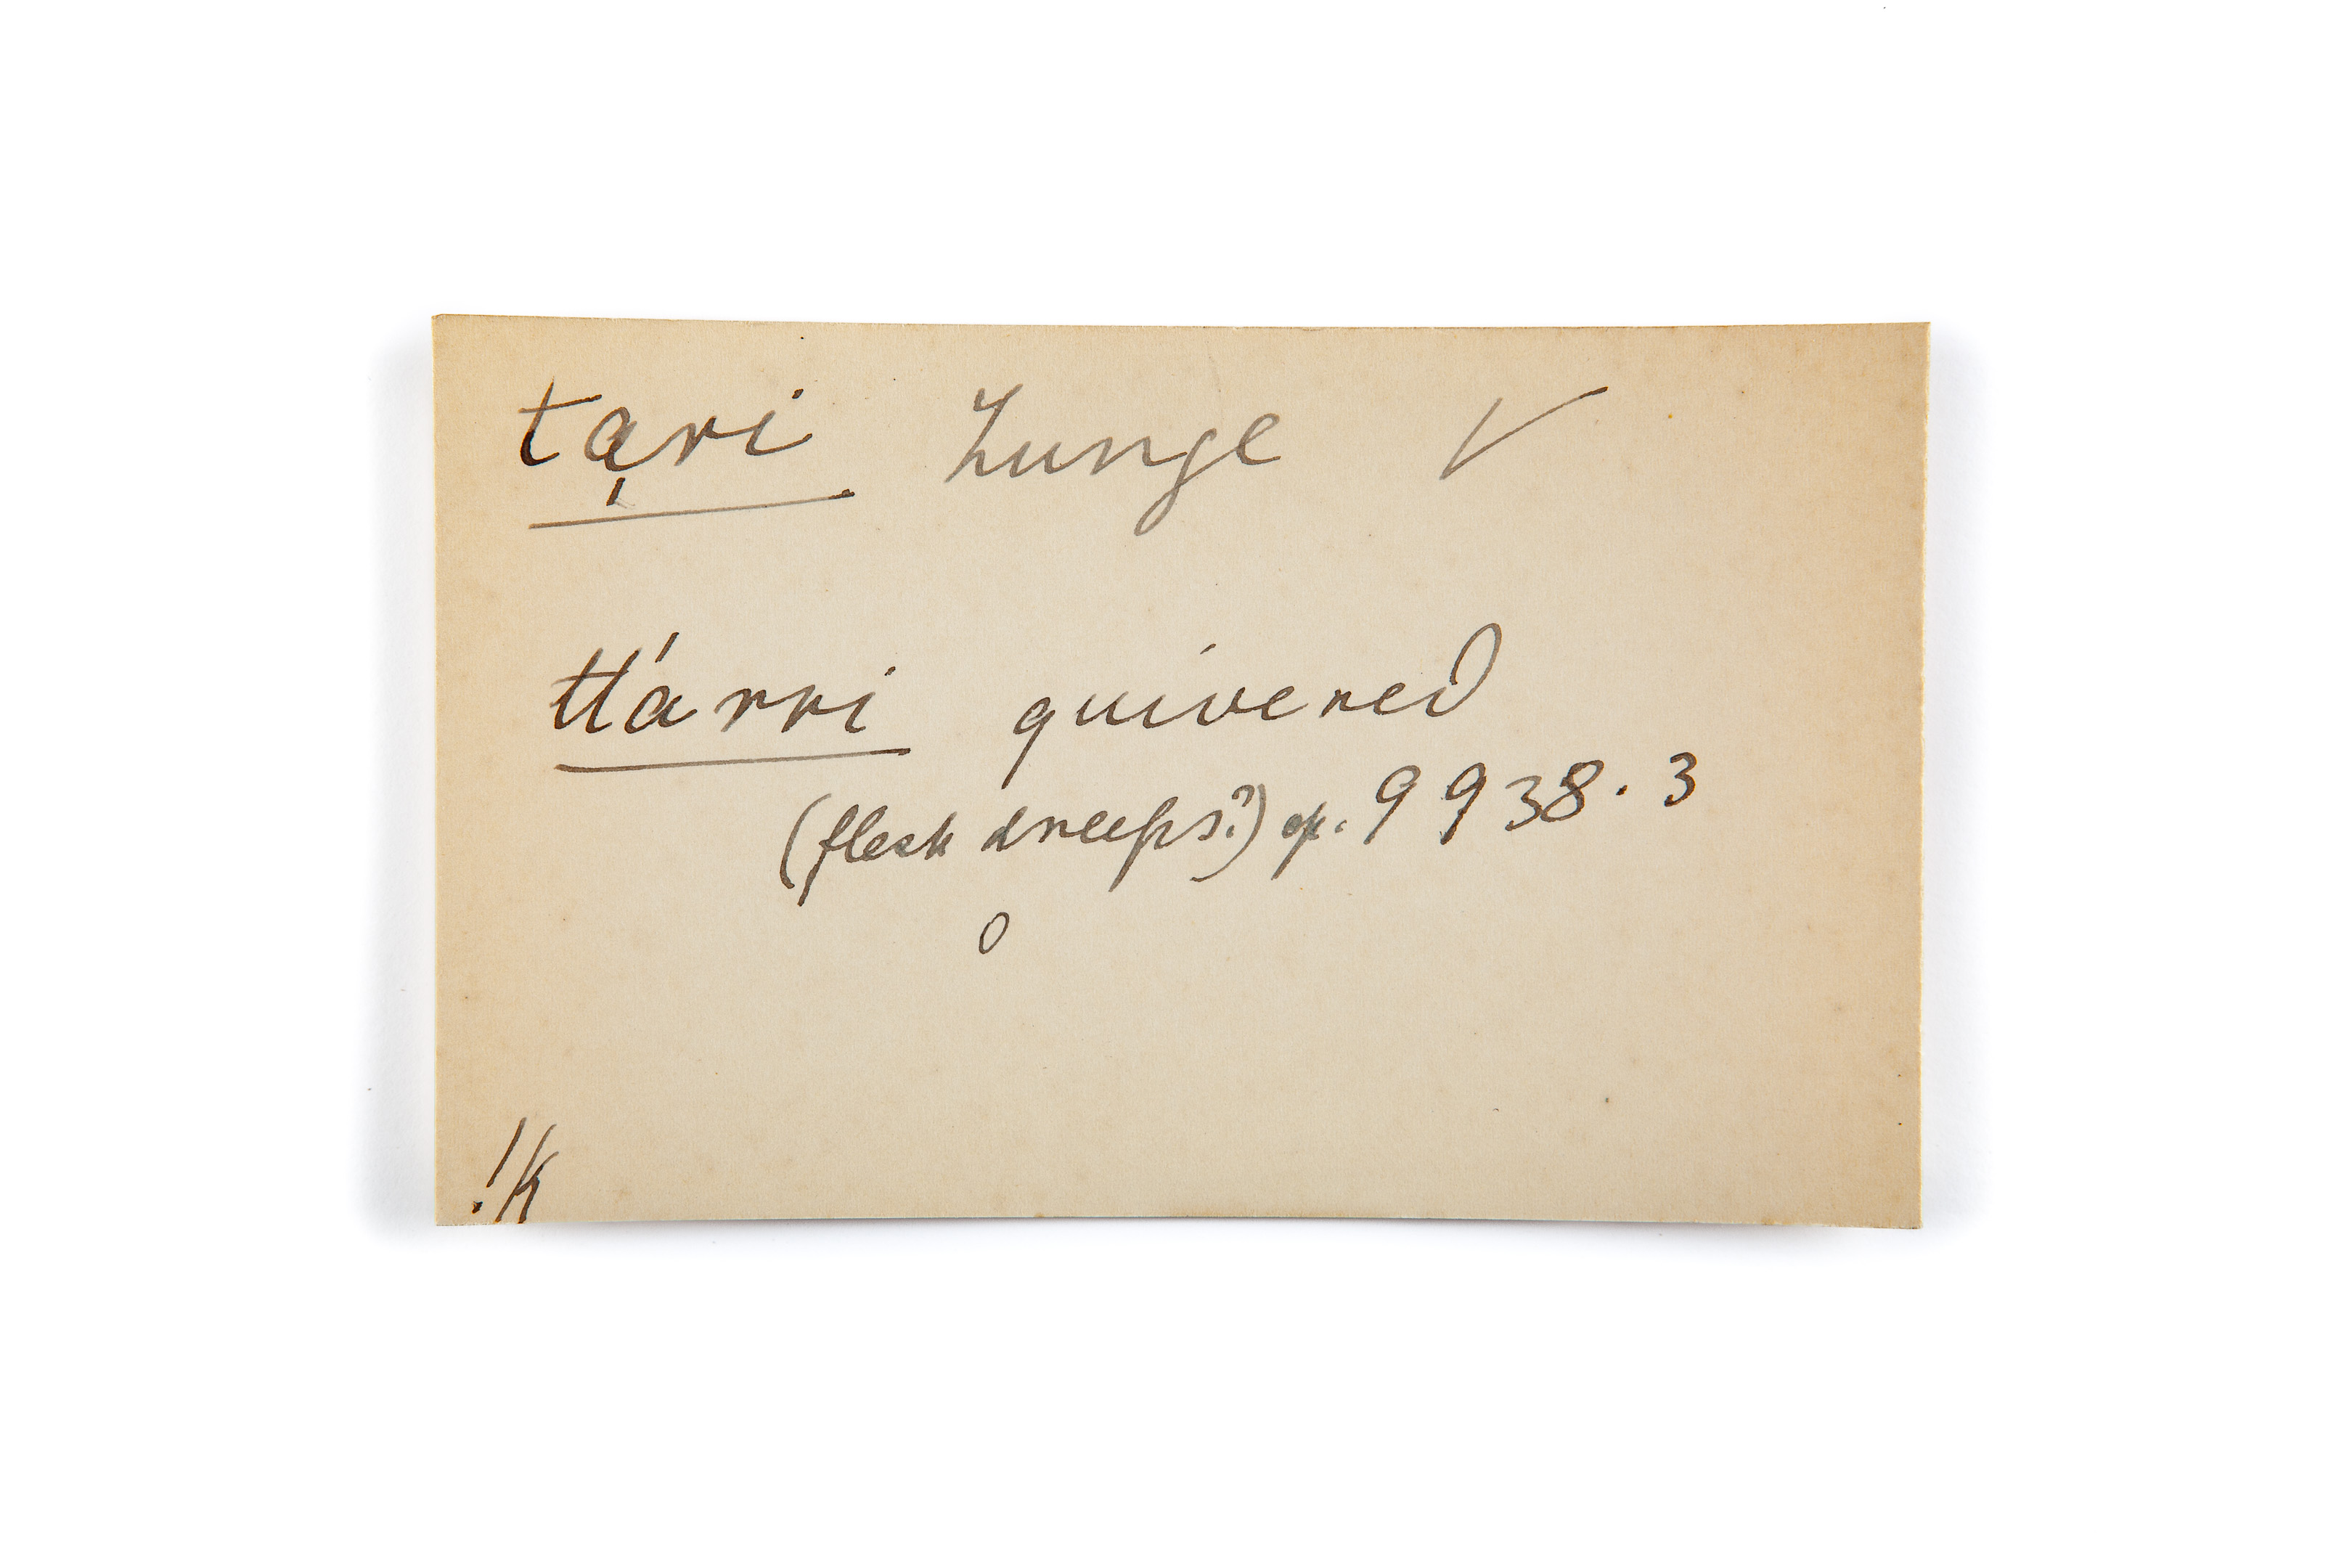 tạri Zunge V
tt'árri quivered
(flesh dreeps?) op. 9 9938.3
0
!k